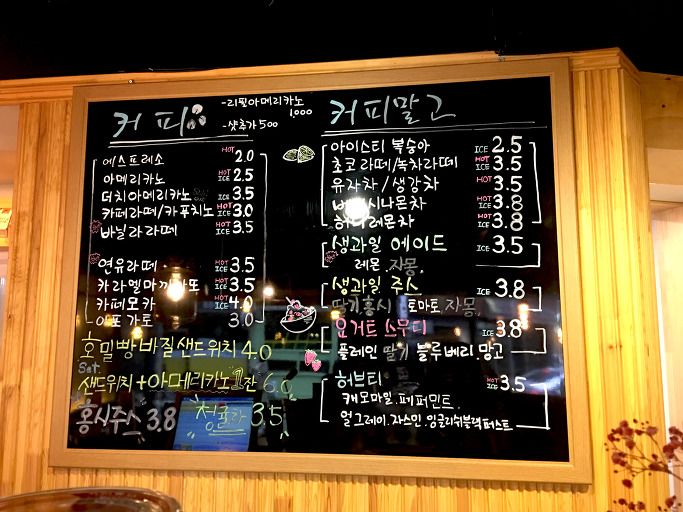 커피
-리필아메리카노
1,000
-샷추가 500
에스프레소 HOT 2.0
아메리카노 HOT ICE 2.5
더치아메리카노 ICE 3.5
카페라떼/카푸치노 HOT ICE 3.0
바닐라라떼 HOT ICE 3.5
연유라떼 HOT ICE 3.5
카라멜마끼아또 HOT ICE 3.5
카페모카 HOT ICE 4.0
아포가토 3.0
호밀빵바질샌드위치 4.0
Set.
샌드위치+아메리카노1잔 6.0
홍시주스 3.8 청귤차 3.5
커피말고
아이스티 복숭아 ICE 2.5
초코라떼/녹차라떼 HOT ICE 3.5
유자차/생강차 HOT 3.5
시나몬차 HOT ICE 3.8
허니레몬차 HOT ICE 3.8
생과일 에이드 ICE 3.5
레몬.자몽.
생과일 주스 ICE 3.8
딸기홍시 토마토.자몽.
요거트 스무디 ICE 3.8
플레인 딸기 블루베리.망고
허브티 HOT ICE 3.5
캐모마일.페퍼민트.
얼그레이.자스민.잉글리쉬블랙퍼스트